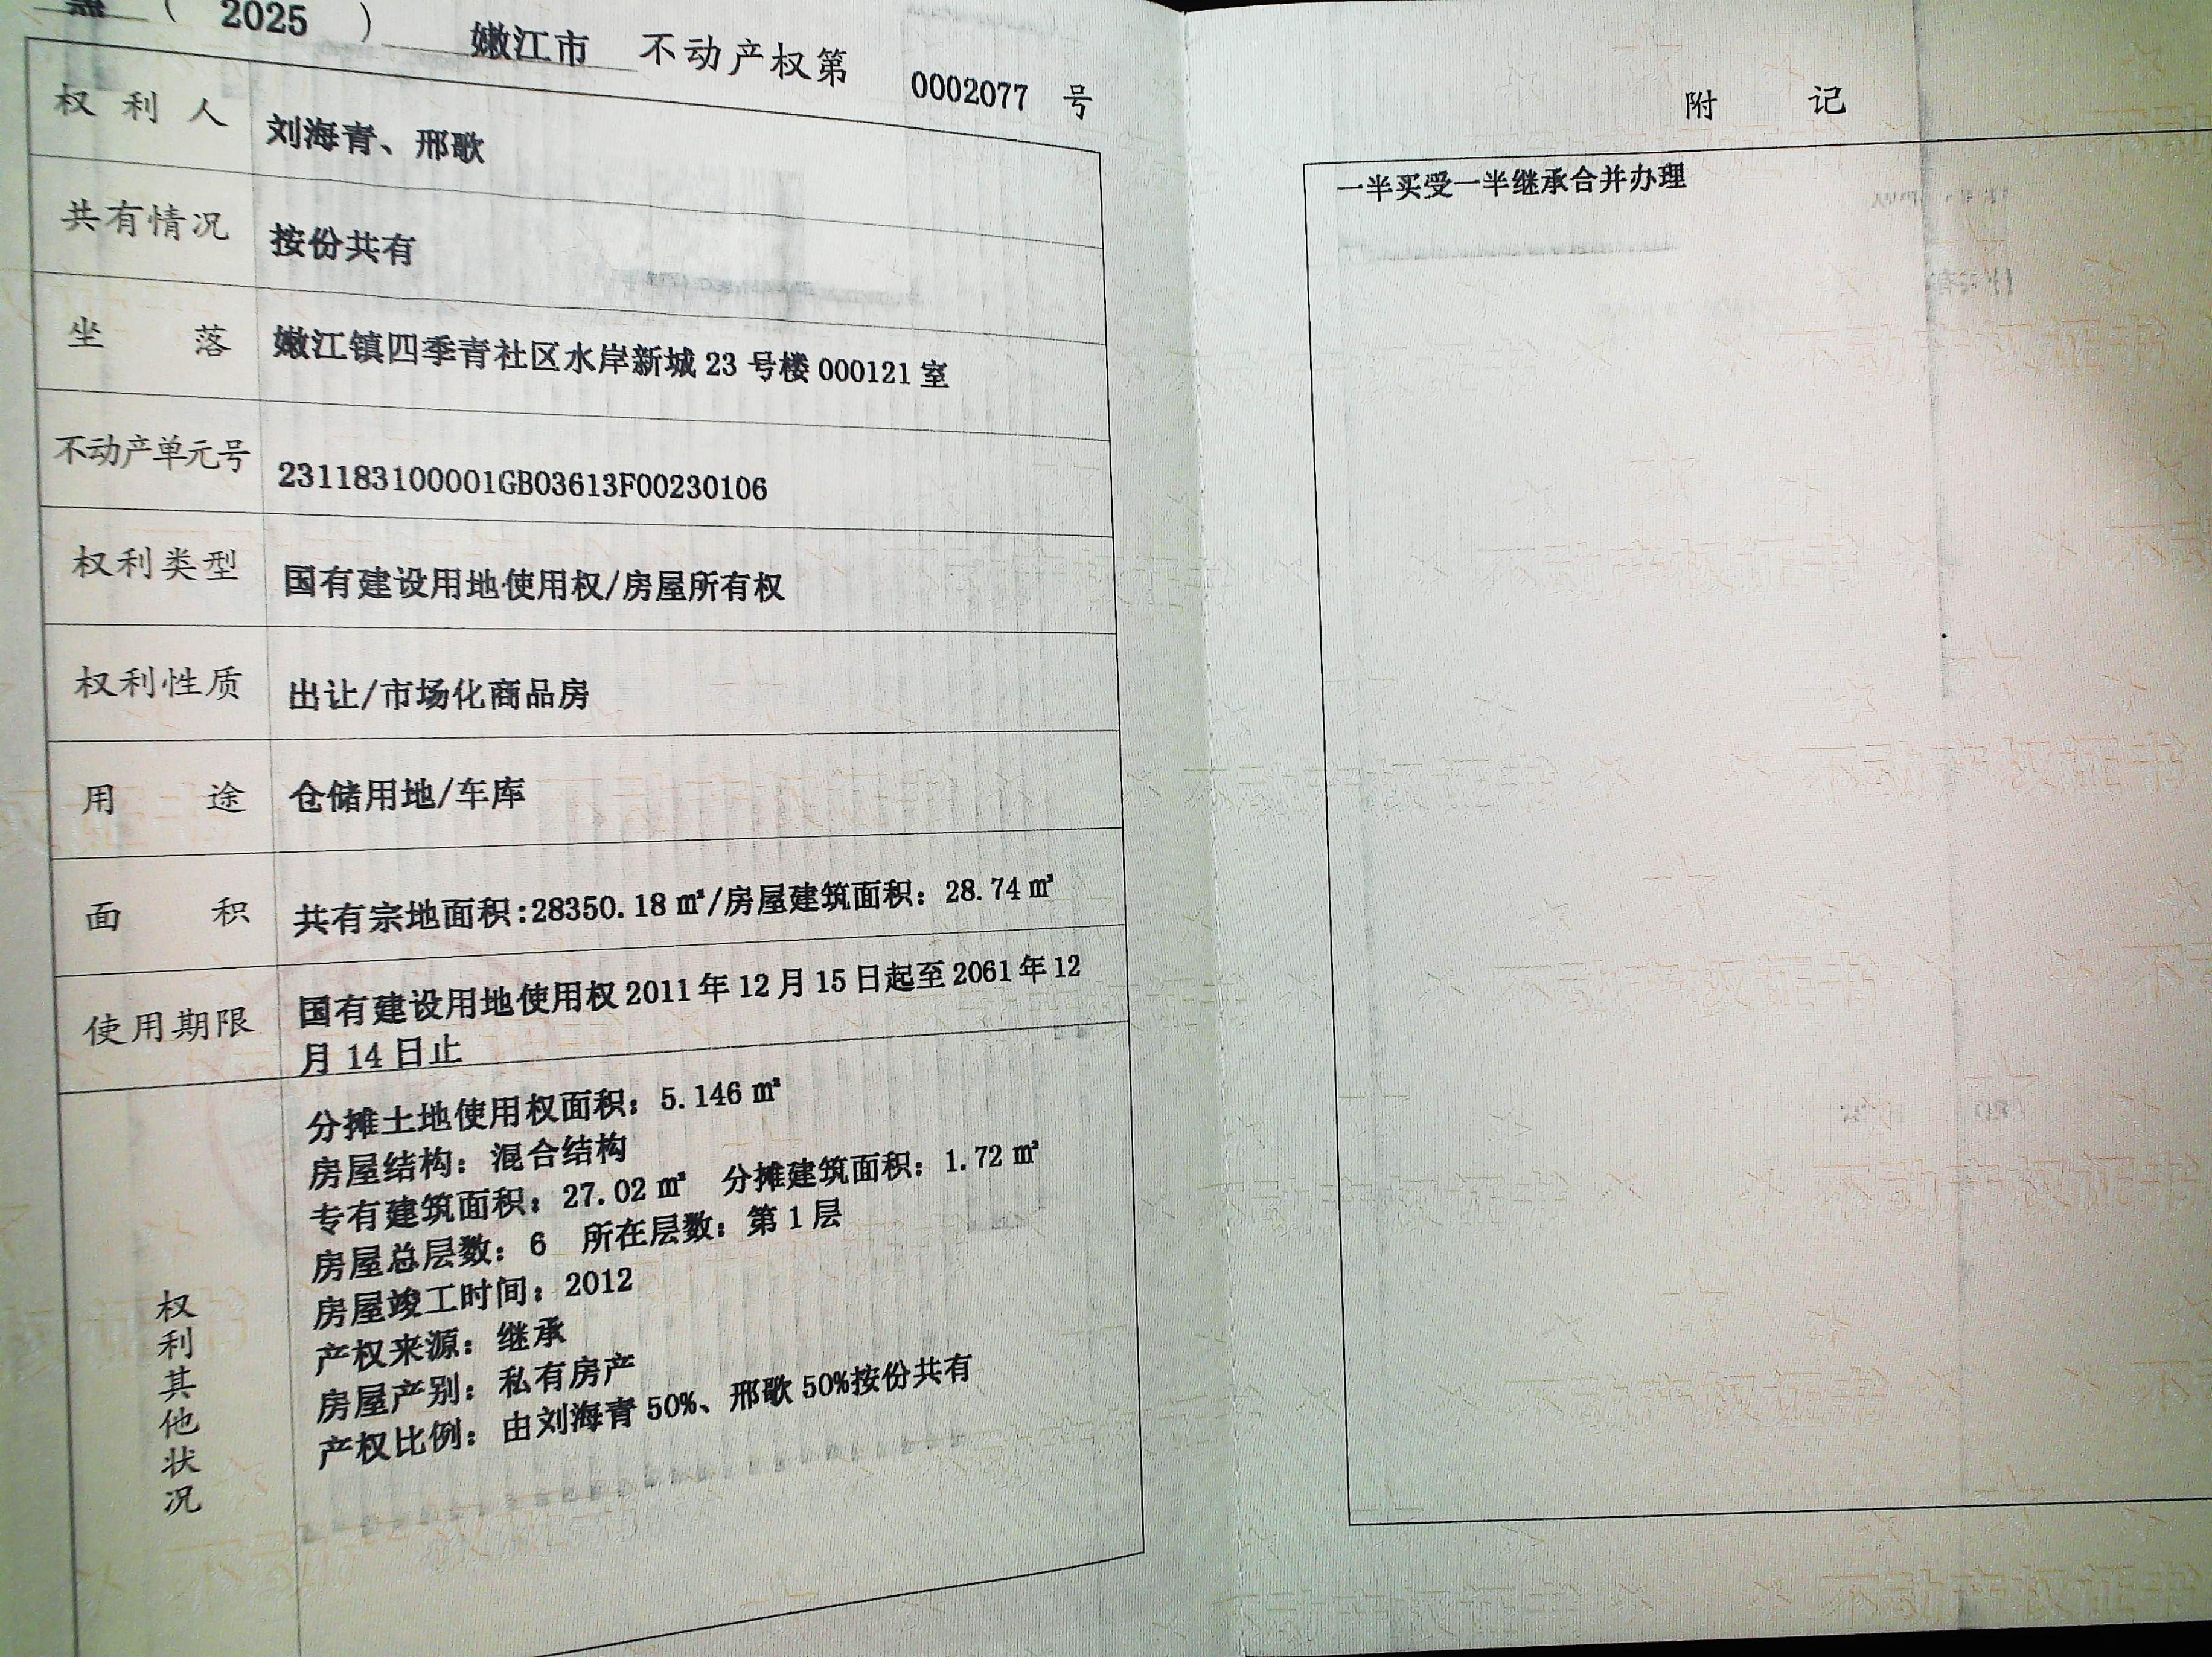 黑 （ 2025 ） 嫩江市 不动产权第 0002077 号
权利人 刘海青、邢歌
共有情况 按份共有
坐落 嫩江镇四季青社区水岸新城 23 号楼 000121 室
不动产单元号 231183100001GB03613F00230106
权利类型 国有建设用地使用权/房屋所有权
权利性质 出让/市场化商品房
用途 仓储用地/车库
面积 共有宗地面积:28350.18 ㎡/房屋建筑面积：28.74 ㎡
使用期限 国有建设用地使用权 2011 年 12 月 15 日起至 2061 年 12
月 14 日止
权利其他状况
分摊土地使用权面积：5.146 ㎡
房屋结构：混合结构
专有建筑面积：27.02 ㎡ 分摊建筑面积：1.72 ㎡
房屋总层数：6 所在层数：第 1 层
房屋竣工时间：2012
产权来源：继承
房屋产别：私有房产
产权比例：由刘海青 50%、邢歌 50%按份共有
附 记
一半买受一半继承合并办理